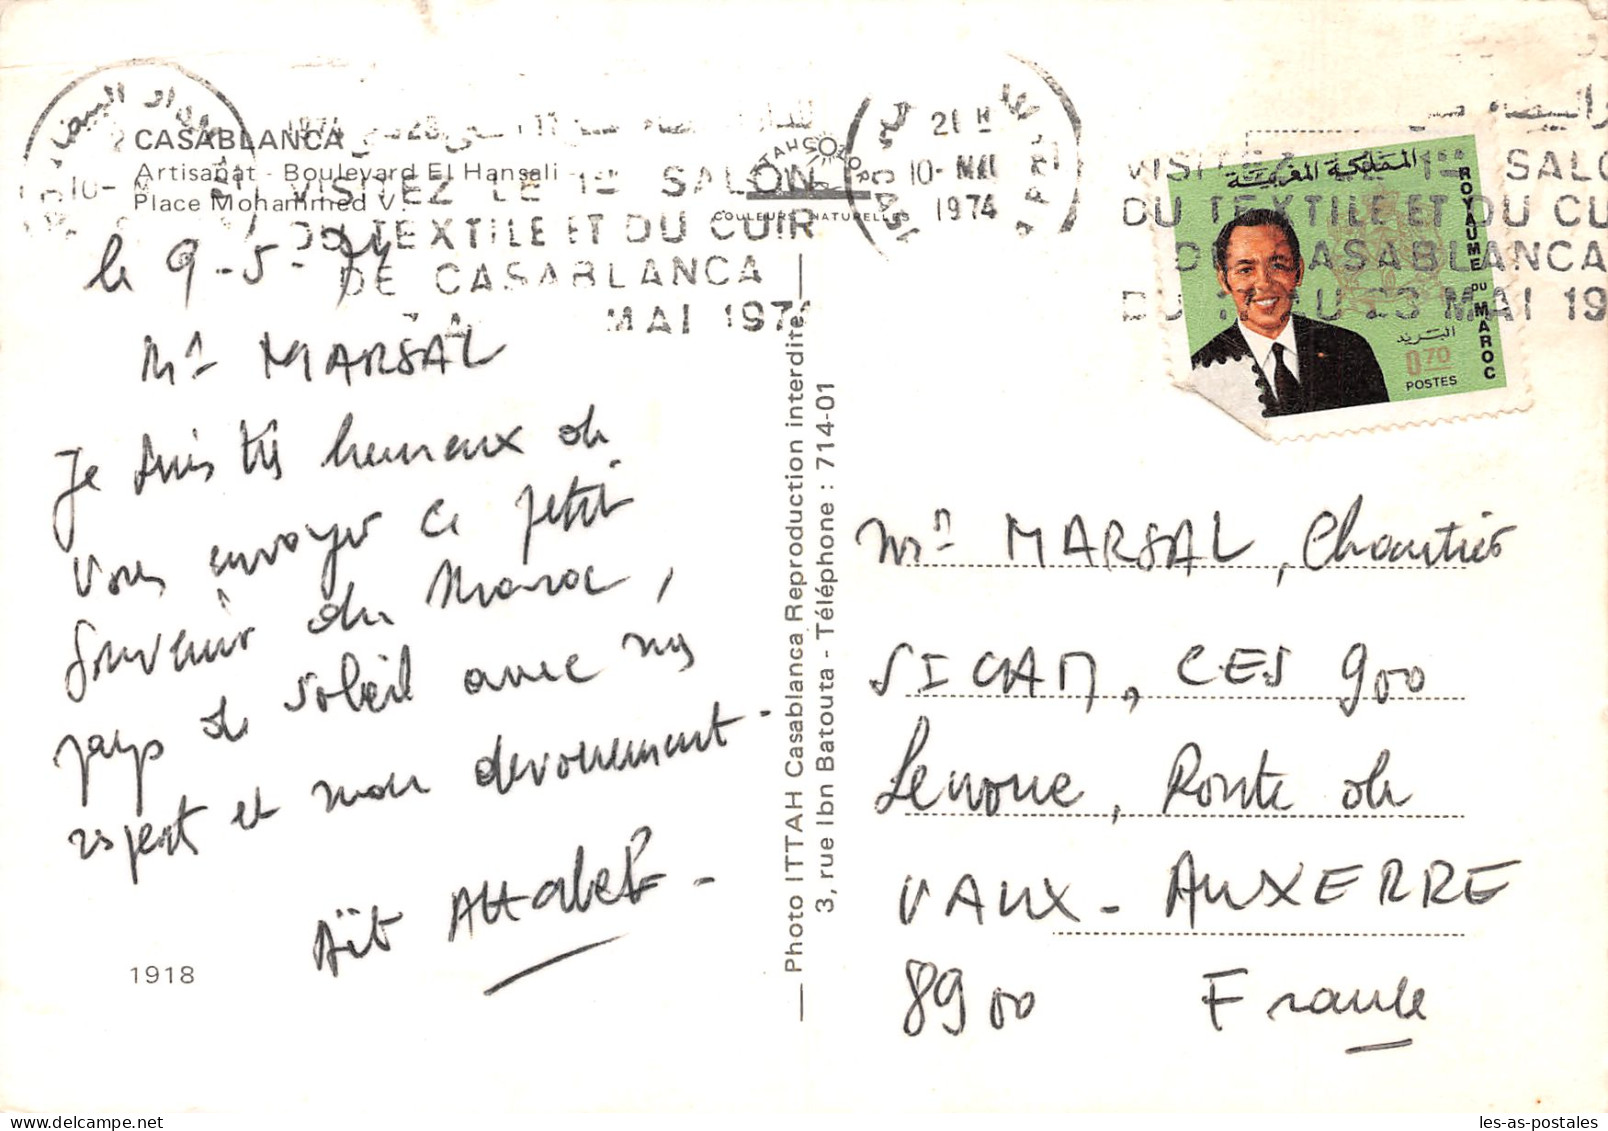 CASABLANCA
Artisanat - Boulevard El Hansali -
Place Mohammed V.
le 9-5-74
Mr MARSAL
Je suis très heureux de
vous envoyer ce petit
souvenir du Maroc,
pays de soleil avec mes
respect et mon devouement -
Aït Attaleb -
1918
VISITEZ LE 1er SALON
DU TEXTILE ET DU CUIR
DE CASABLANCA
MAI 1974
COULEURS NATURELLES
Photo ITTAH Casablanca Reproduction interdite
3, rue Ibn Batouta - Téléphone : 714-01
21 H
10- MAI
1974
VISITEZ LE 1er SALO
DU TEXTILE ET DU CU
DE CASABLANCA
DU 17 AU 23 MAI 19
المملكة المغربية
ROYAUME DU MAROC
البريد
0.70
POSTES
Mr MARSAL, Chantier
SICAM, CES 900
Lenoue, Route de
VAUX - AUXERRE
8900 France
les-as-postales